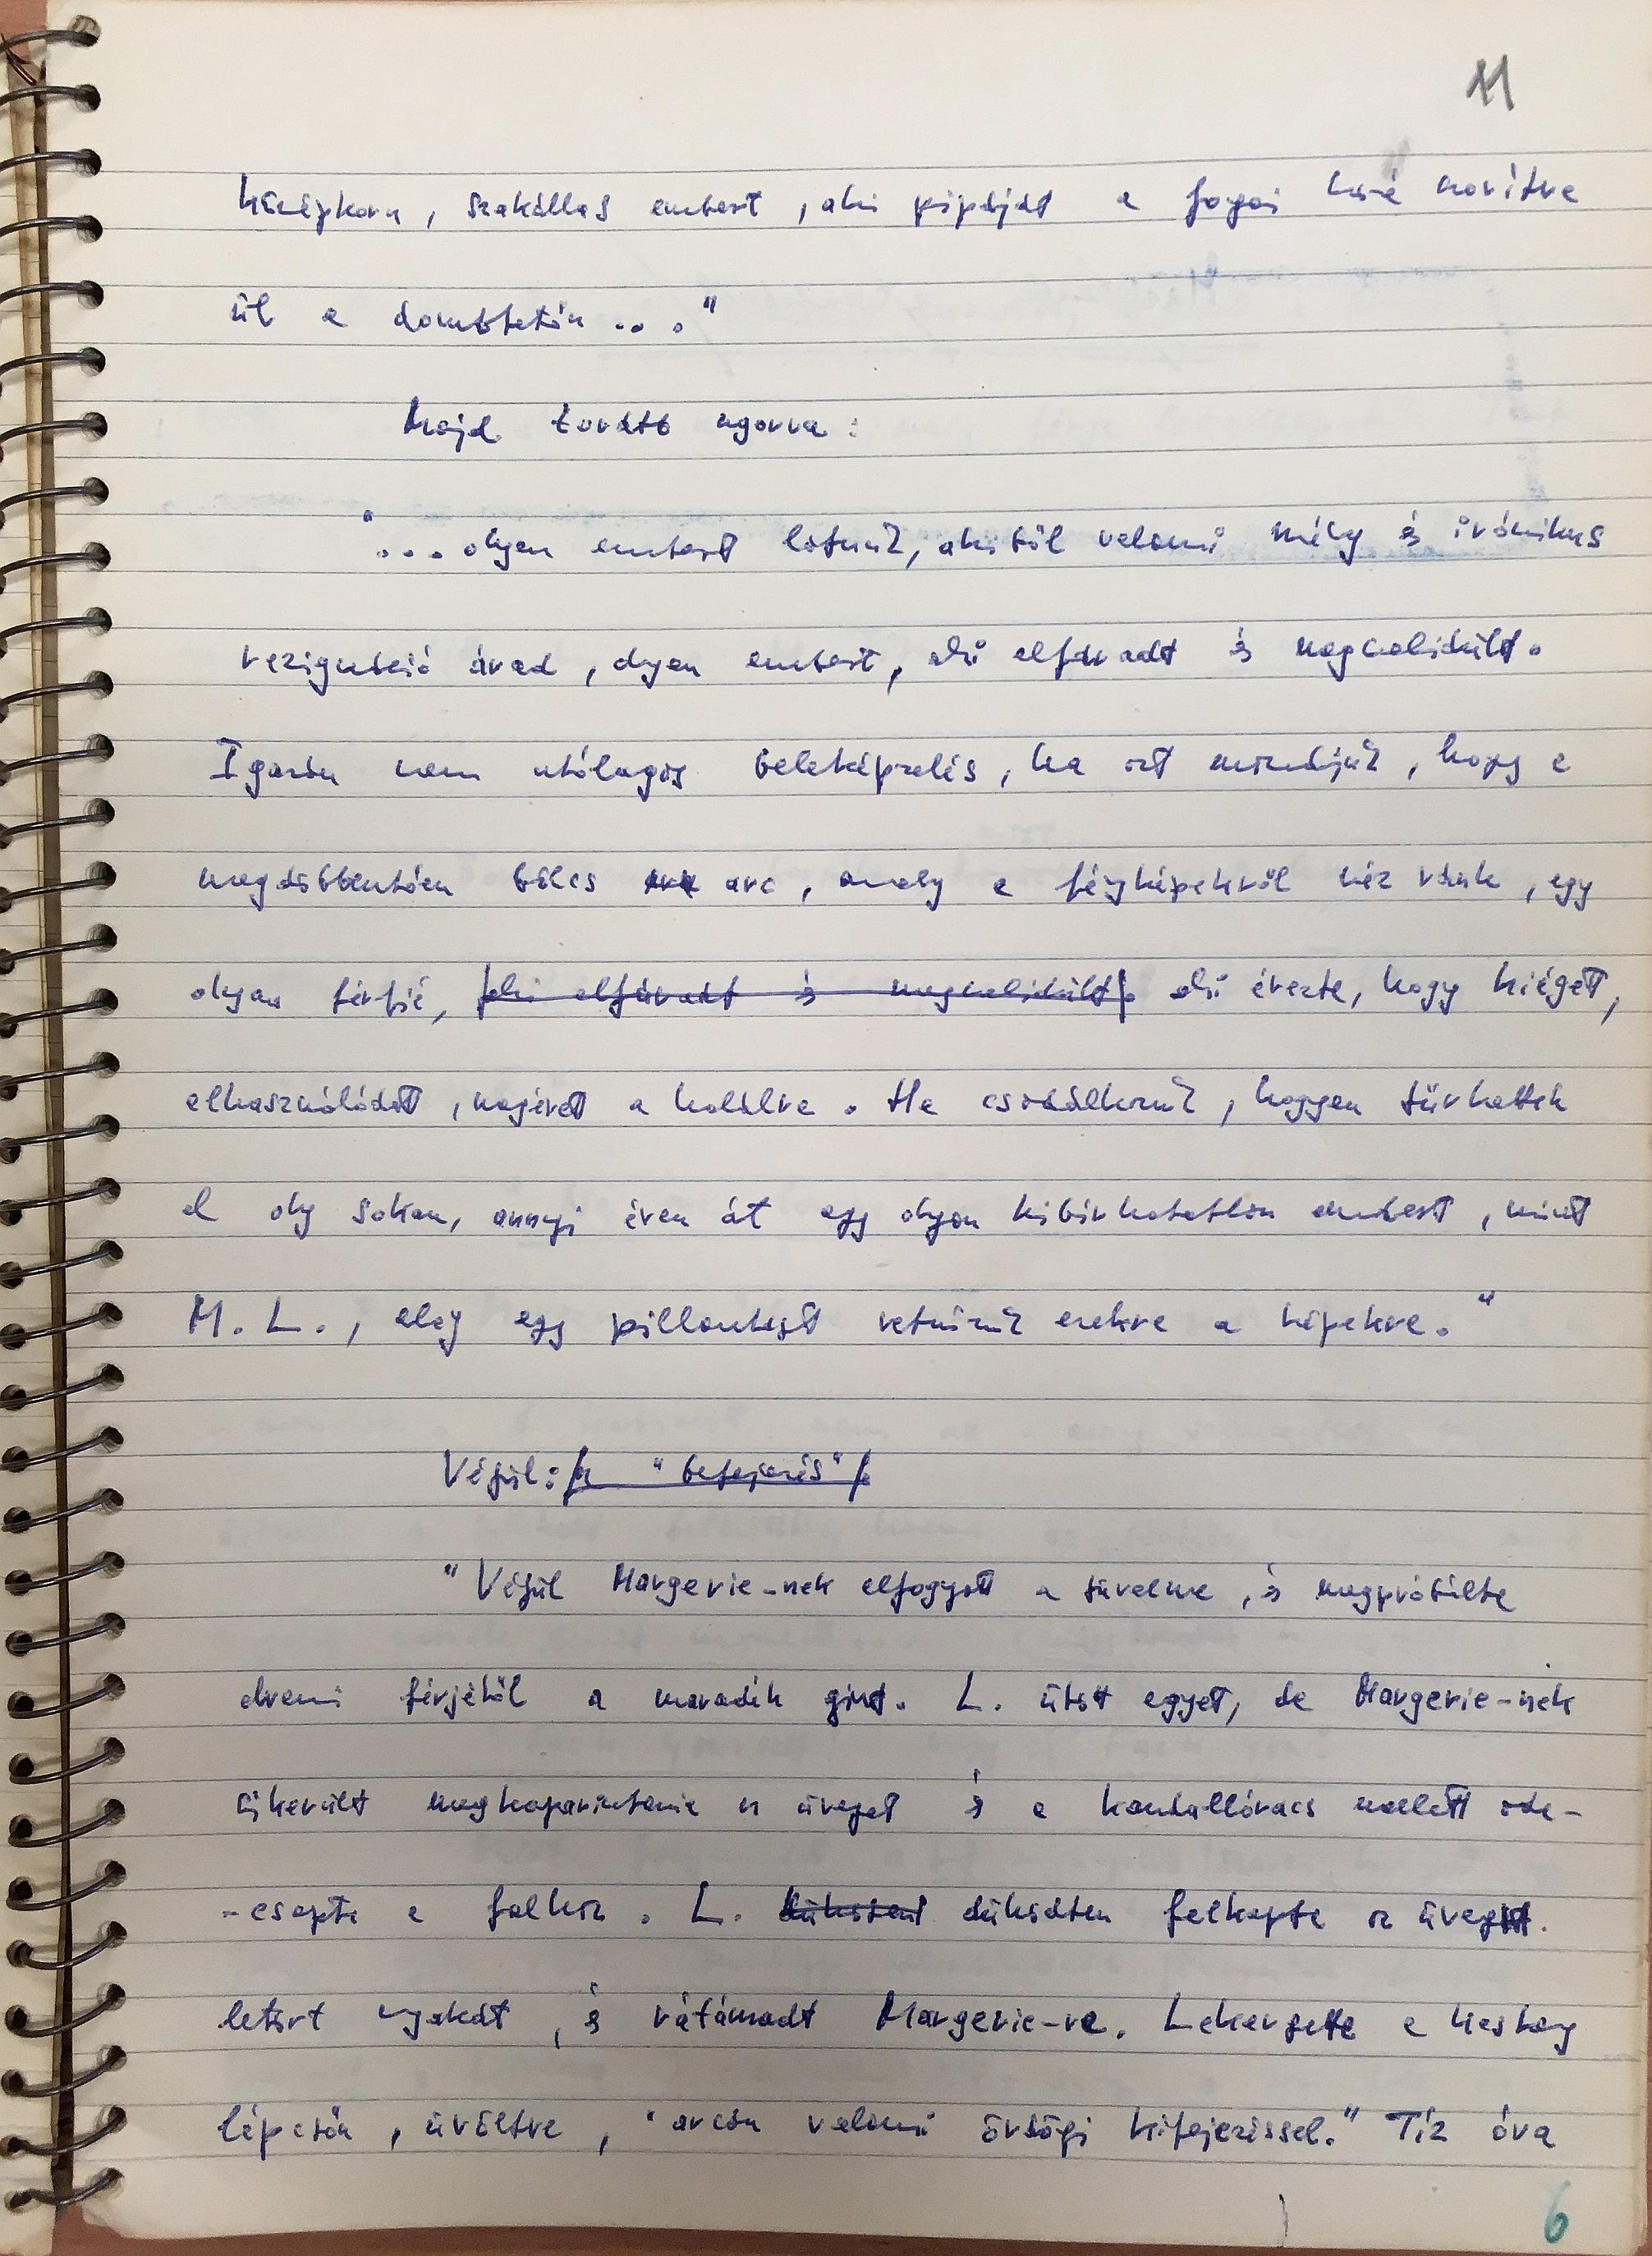 11
középkorú, szakállas embert, aki pipáját a fogai közé szorítva
ül a dombtetőn ..."
Majd tovább ugorva:
"... olyan embert látunk, akiből valami mély és irónikus
rezignáció árad, olyan embert, aki elfáradt és megcsalódott.
Igazán nem utólagos beleképzelés, ha azt mondjuk, hogy e
megdöbbentően bölcs arc, amely a fényképekről néz ránk, egy
olyan férfié, aki elfáradt és aki érezte, hogy kiégett,
elhasználódott, megérett a halálra. Ha csodálkozunk, hogyan tűrhettek
el oly sokan, annyi éven át egy olyan kibírhatatlan embert, mint
M. L., elég egy pillantást vetnünk ezekre a képekre."
Végül: a "befejezés"
"Végül Margerie-nek elfogyott a türelme, és megpróbálta
elvenni férjétől a maradék gint. L. ütött egyet, de Margerie-nek
sikerült megkaparintania az üveget és a kandallórács mellett oda-
-csapta a falhoz. L. dühödten felkapta az üveg
letört nyakát, és rátámadt Margerie-re. Lekergette a keskeny
lépcsőn, üvöltve, "arcán valami ördögi kifejezéssel." Tíz óra
6